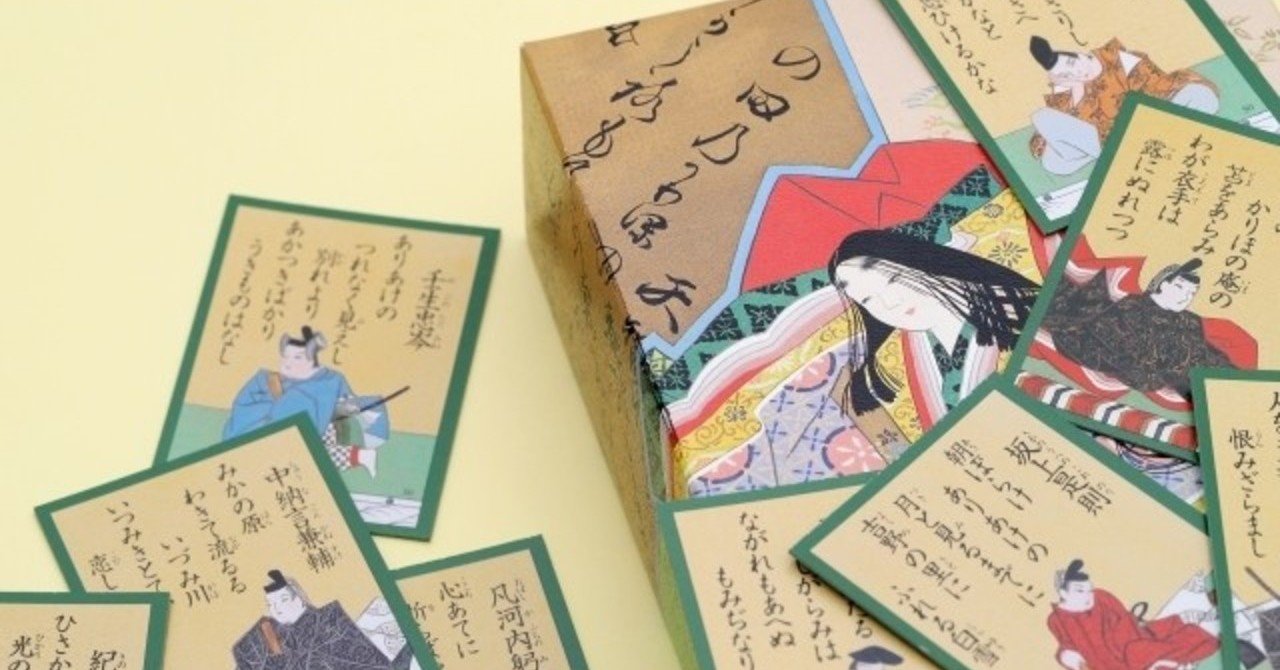 さりし
さへ
がなと
思ひけるかな
かりほの庵の
苫をあらみ
わが衣手は
露にぬれつつ
恨みざらまし
壬生忠岑
ありあけの
つれなく見えし
別れより
あかつきばかり
うきものはなし
中納言兼輔
みかの原
わきて流るる
いづみ川
いつみきとて
恋し
凡河内躬
心あてに
坂上是則
朝ぼらけ
ありあけの
月と見るまでに
吉野の里に
ふれる白雪
がらみは
ながれもあへぬ
もみぢなり
紀
ひさか
光の